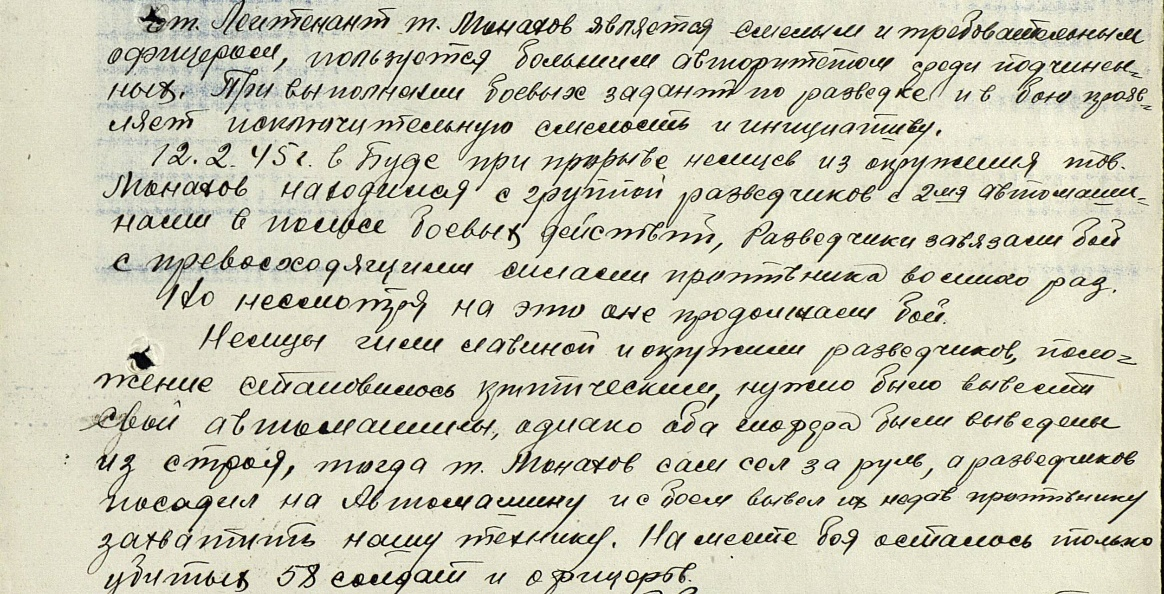 ст. Лейтенант т. Монахов является смелым и требовательным
офицером, пользуется большим авторитетом среди подчинен-
ных. При выполнении боевых задант по разведке и в бою прояв-
ляет исключительную смелость и инициативу.
12.2.45г. в Буде при прорыве немцев из окружения тов.
Монахов находился с группой разведчиков с 2мя автомаши-
нами в полосе боевых действий, Разведчики завязали бой
с превосходящими силами противника во много раз.
Но несмотря на это они продолжали бой.
Немцы шли лавиной и окружили разведчиков, поло-
жение становилось критическим, нужно было вывести
свои автомашины, однако оба шофера были выведены
из строя, тогда т. Монахов сам сел за руль, а разведчиков
посадил на Автомашину и с боем вывел их недав противнику
захватить нашу технику. На месте боя осталось только
убитых 58 солдат и офицеров.